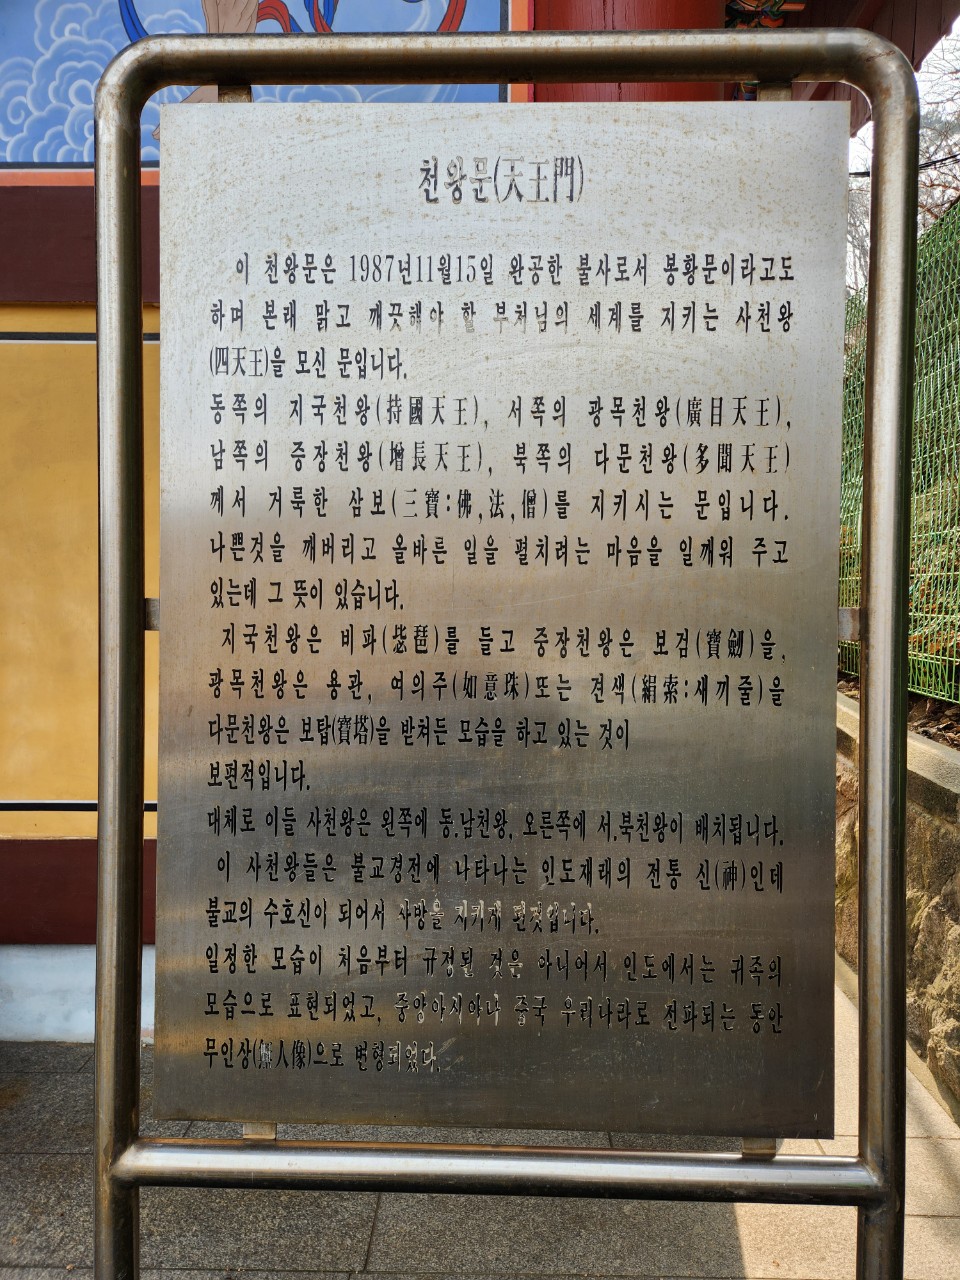 천왕문(天王門)
이 천왕문은 1987년11월15일 완공한 불사로서 봉황문이라고도
하며 본래 맑고 깨끗해야 할 부처님의 세계를 지키는 사천왕
(四天王)을 모신 문입니다.
동쪽의 지국천왕(持國天王), 서쪽의 광목천왕(廣目天王),
남쪽의 증장천왕(增長天王), 북쪽의 다문천왕(多聞天王)
께서 거룩한 삼보(三寶:佛,法,僧)를 지키시는 문입니다.
나쁜것을 깨버리고 올바른 일을 펼치려는 마음을 일깨워 주고
있는데 그 뜻이 있습니다.
지국천왕은 비파(琵琶)를 들고 중장천왕은 보검(寶劍)을,
광목천왕은 용관, 여의주(如意珠)또는 견색(絹索:새끼줄)을
다문천왕은 보탑(寶塔)을 받쳐든 모습을 하고 있는 것이
보편적입니다.
대체로 이들 사천왕은 왼쪽에 동.남천왕, 오른쪽에 서.북천왕이 배치됩니다.
이 사천왕들은 불교경전에 나타나는 인도재래의 전통 신(神)인데
불교의 수호신이 되어서 사방을 지키게 된것입니다.
일정한 모습이 처음부터 규정될 것은 아니어서 인도에서는 귀족의
모습으로 표현되었고, 중앙아시아나 중국 우리나라로 전파되는 동안
무인상(無人像)으로 변형되었다.